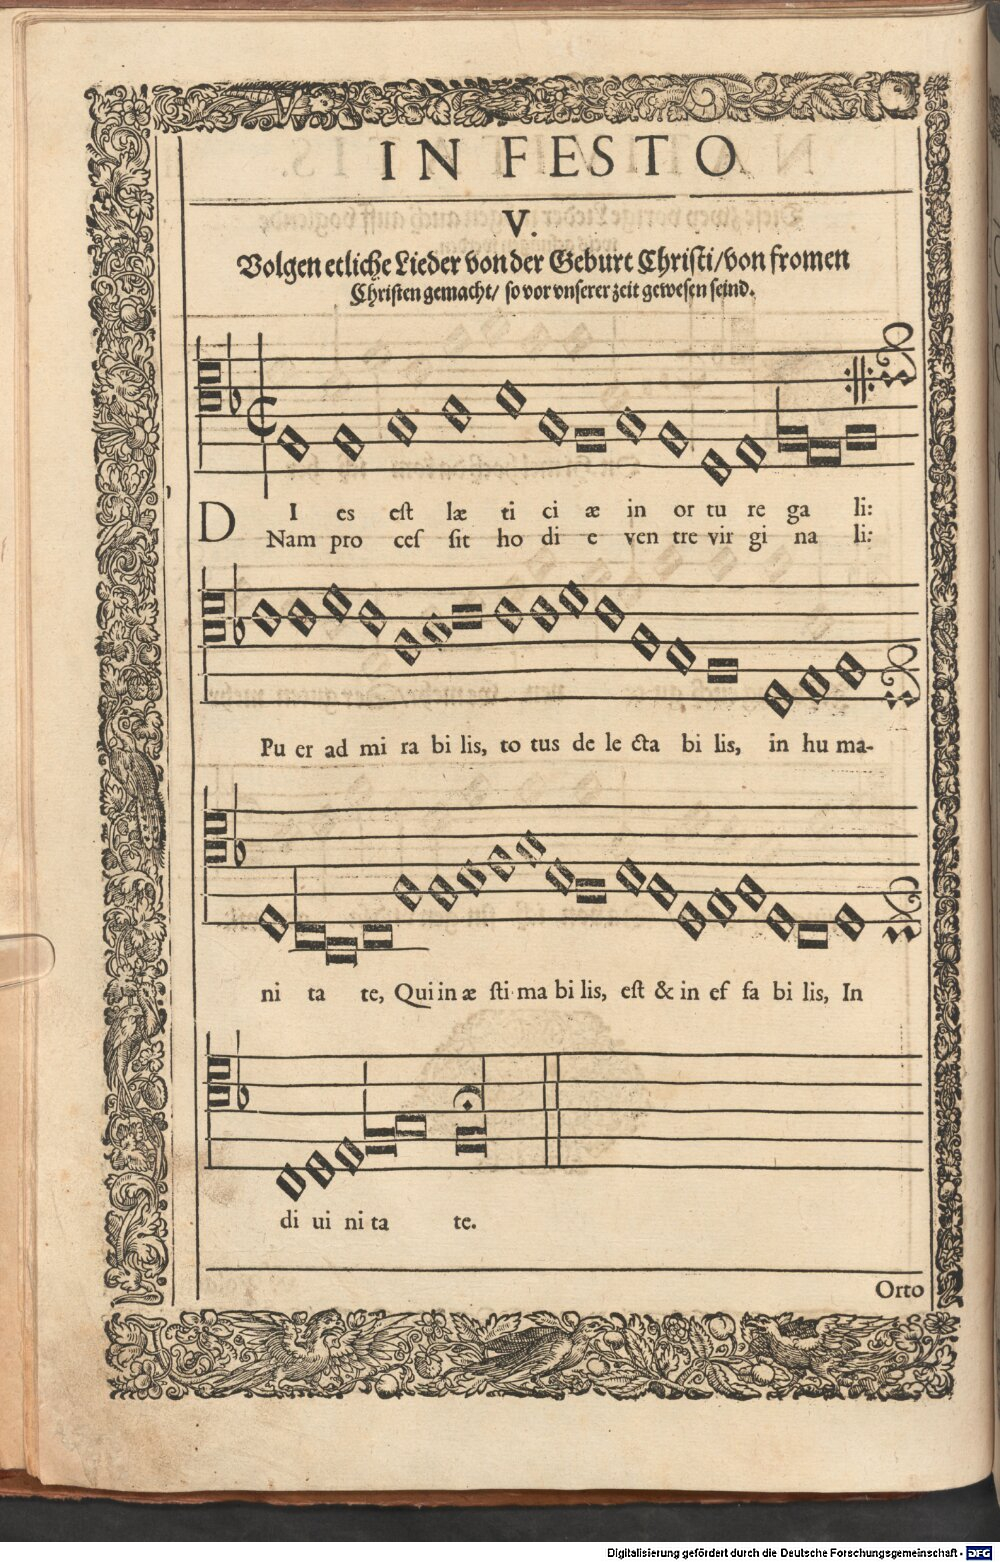 IN FESTO
V.
Volgen etliche Lieder von der Geburt Christi/ von fromen
Christen gemacht/ so vor vnserer zeit gewesen seind.
DI es est læ ti ci æ in or tu re ga li:
Nam pro ces sit ho di e ven tre vir gi na li:
Pu er ad mi ra bi lis, to tus de le cta bi lis, in hu ma-
ni ta te, Qui in æ sti ma bi lis, est & in ef fa bi lis, In
di ui ni ta te.
Orto
Digitalisierung gefördert durch die Deutsche Forschungsgemeinschaft - DFG